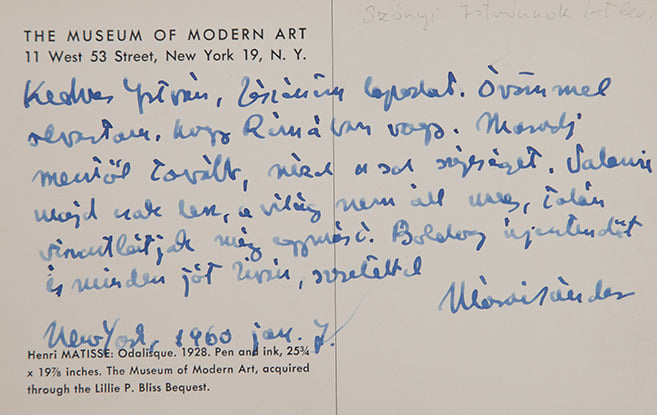 THE MUSEUM OF MODERN ART
11 West 53 Street, New York 19, N. Y.
Szőnyi Istvánnak írt lev.
Kedves István, lapodat. Örömmel
olvastam, hogy Rómában vagy. Maradj
mentől tovább, nézd a sok szépséget. Valami
majd csak lesz, a világ nem áll meg, talán
viszontlátjuk még egymást. Boldog újesztendőt
és minden jót kíván, szeretettel
Márai Sándor
New York, 1960 jan. 7.
Henri MATISSE: Odalisque. 1928. Pen and ink, 25¾
x 19⅞ inches. The Museum of Modern Art, acquired
through the Lillie P. Bliss Bequest.